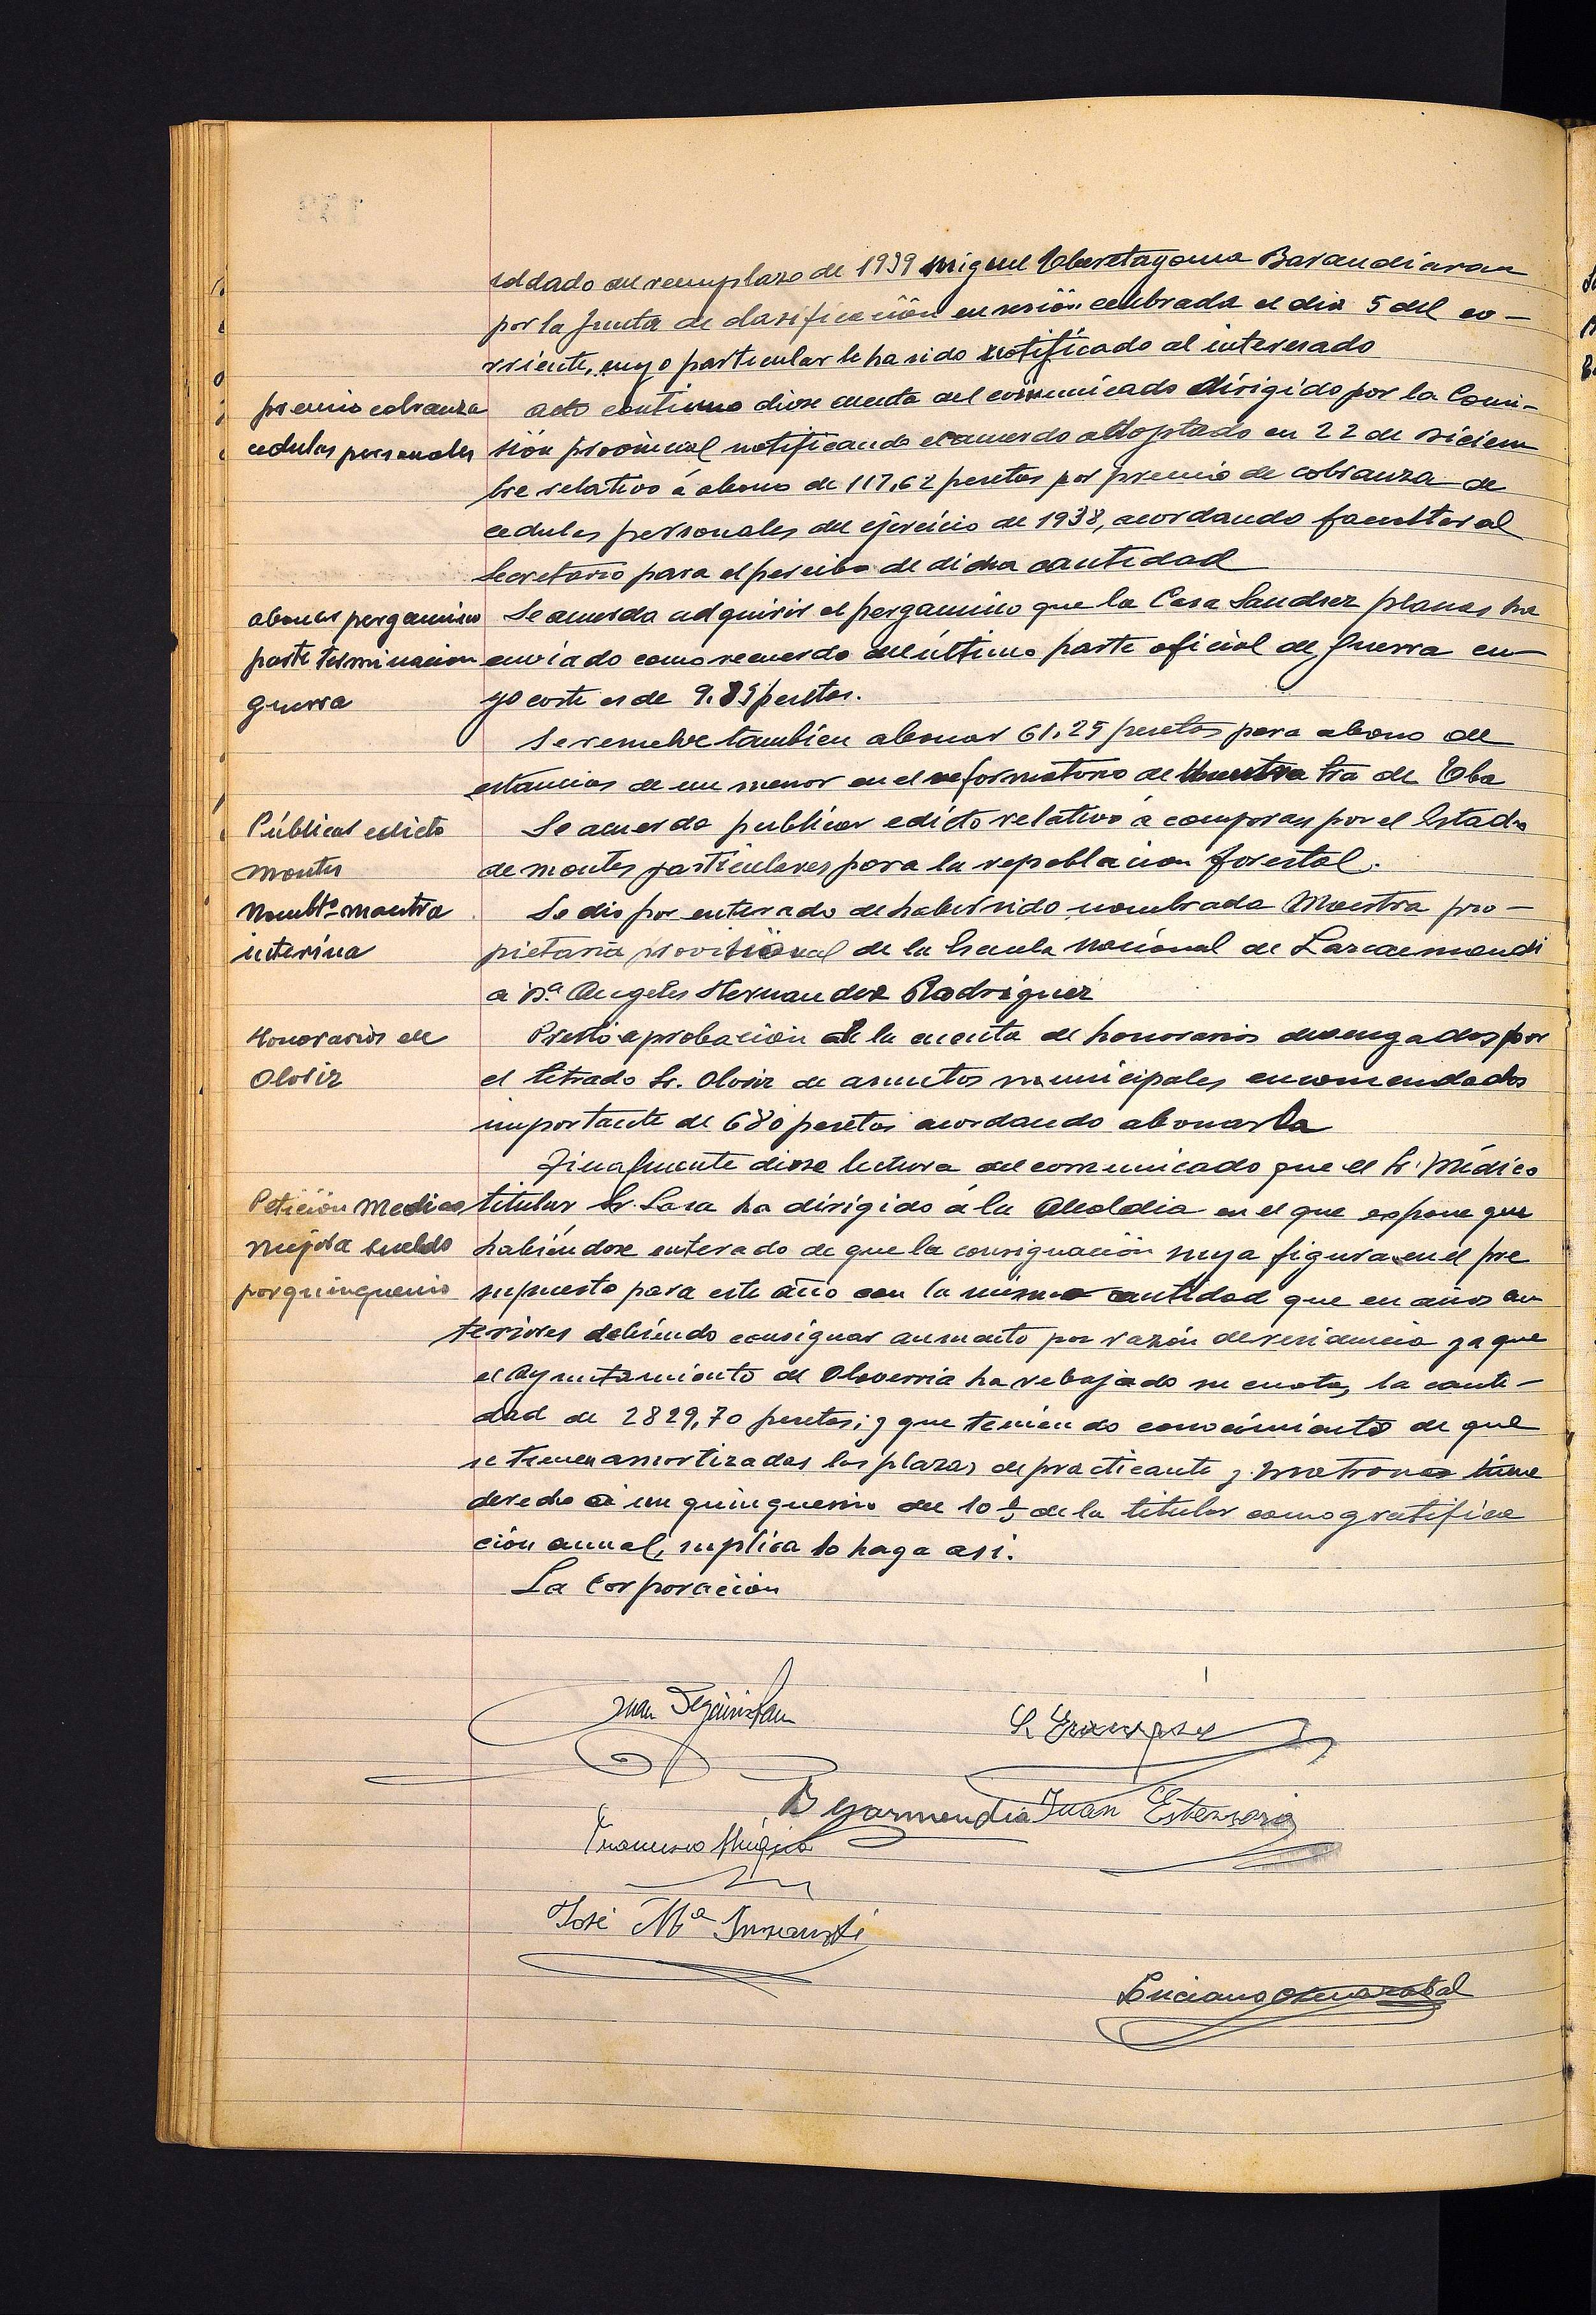 soldado del reemplazo de 1939 Miguel Oberetagoena Barandiaran
por la Junta de clasificación en sesión celebrada el dia 5 del co-
rriente, cuyo particular le ha sido notificado al interesado
premio cobranza
cedulas personales
acto continuo diose cuenta del comunicado dirigido por la Comi-
sión provincial notificando el acuerdo adoptado en 22 de diciem
bre relativo á abono de 117,62 pesetas por premio de cobranza de
cedulas personales del ejercicio de 1938, acordando facultar al
Secretario para el percibo de dicha cantidad
abonar pergamino
parte terminacion
guerra
Se acuerda adquirir el pergamino que la Casa Sanchez planas ha
enviado como recuerdo del último parte oficial de guerra cu-
yo coste es de 9.89 pesetas.
Se resuelve tambien abonar 61.25 pesetas para abono de
estancias de un menor en el reformatorio de tra de Uba
Públicar edicto
montes
Se acuerda publicar edicto relativo á compras por el Estado
de montes particulares para la repoblacion forestal.
Nombtº maestra
interina
Se dio por enterado de haber sido nombrada Maestra pro-
pietaria provisional de la Escuela Nacional de Lazcaomendi
a Dª Angeles Hernandez Rodriguez
Honorarios de
Olosiz
Prestó aprobación de la cuenta de honorarios devengados por
el letrado Sr. Olosiz de asuntos municipales encomendados
importante de 680 pesetas acordando abonarla
Finalmente diose lectura del comunicado que el Sr. Médico
Petición Medico
mejora sueldo
por quinquenio
titular Sr. Lasa ha dirigido á la Alcaldia en el que expone que
habiéndose enterado de que la consignación suya figura en el pre
supuesto para este año con la misma cantidad que en años an
teriores debiendo consignar aumento por razón de residencia ya que
el Ayuntamiento de Olaverria ha rebajado su cuota, la canti-
dad de 2829,70 pesetas; y que teniendo conocimiento de que
se tienen amortizadas las plazas de practicante y matrona tiene
derecho a un quinquenio del 10 % de la titular como gratifica
ción anual, suplica lo haga asi.
La Corporación
Juan
B Garmendia
Juan
Francisco Mugica
José Mª Insausti
Luciano